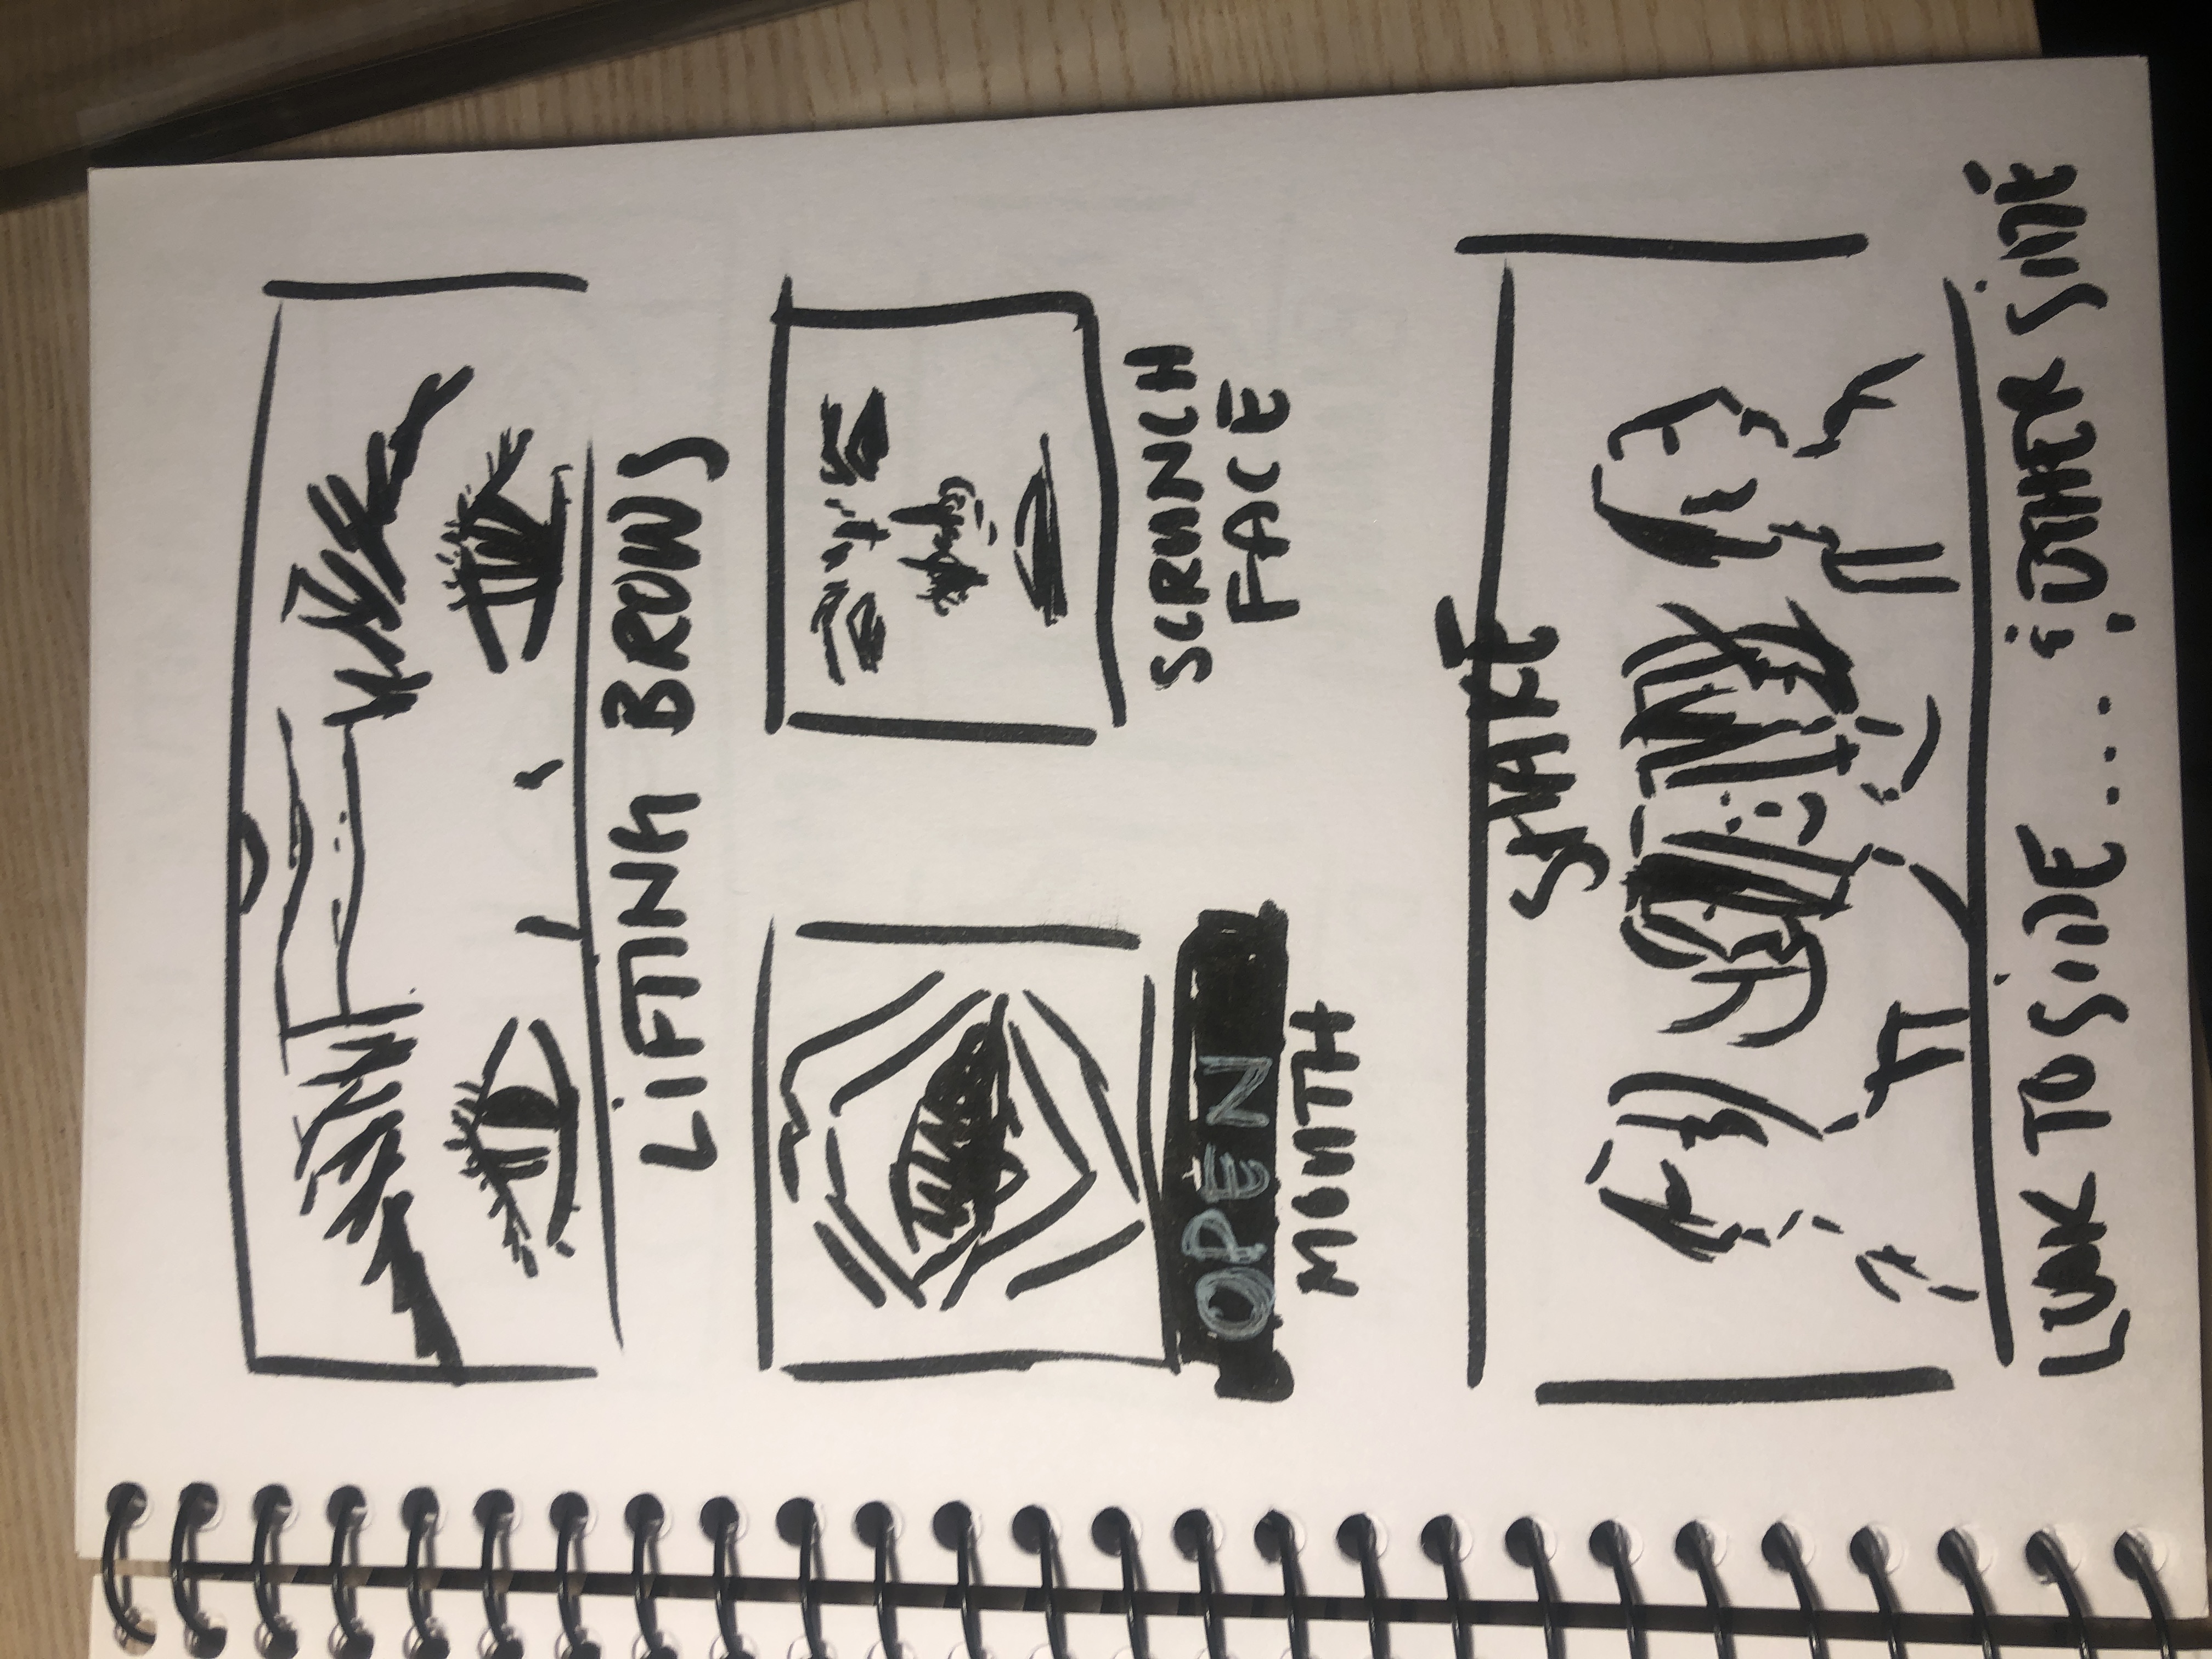 LIFTING BROWS
OPEN
MOUTH
SCRUNCH
FACE
SHAKE
LOOK TO SIDE... & OTHER SIDE